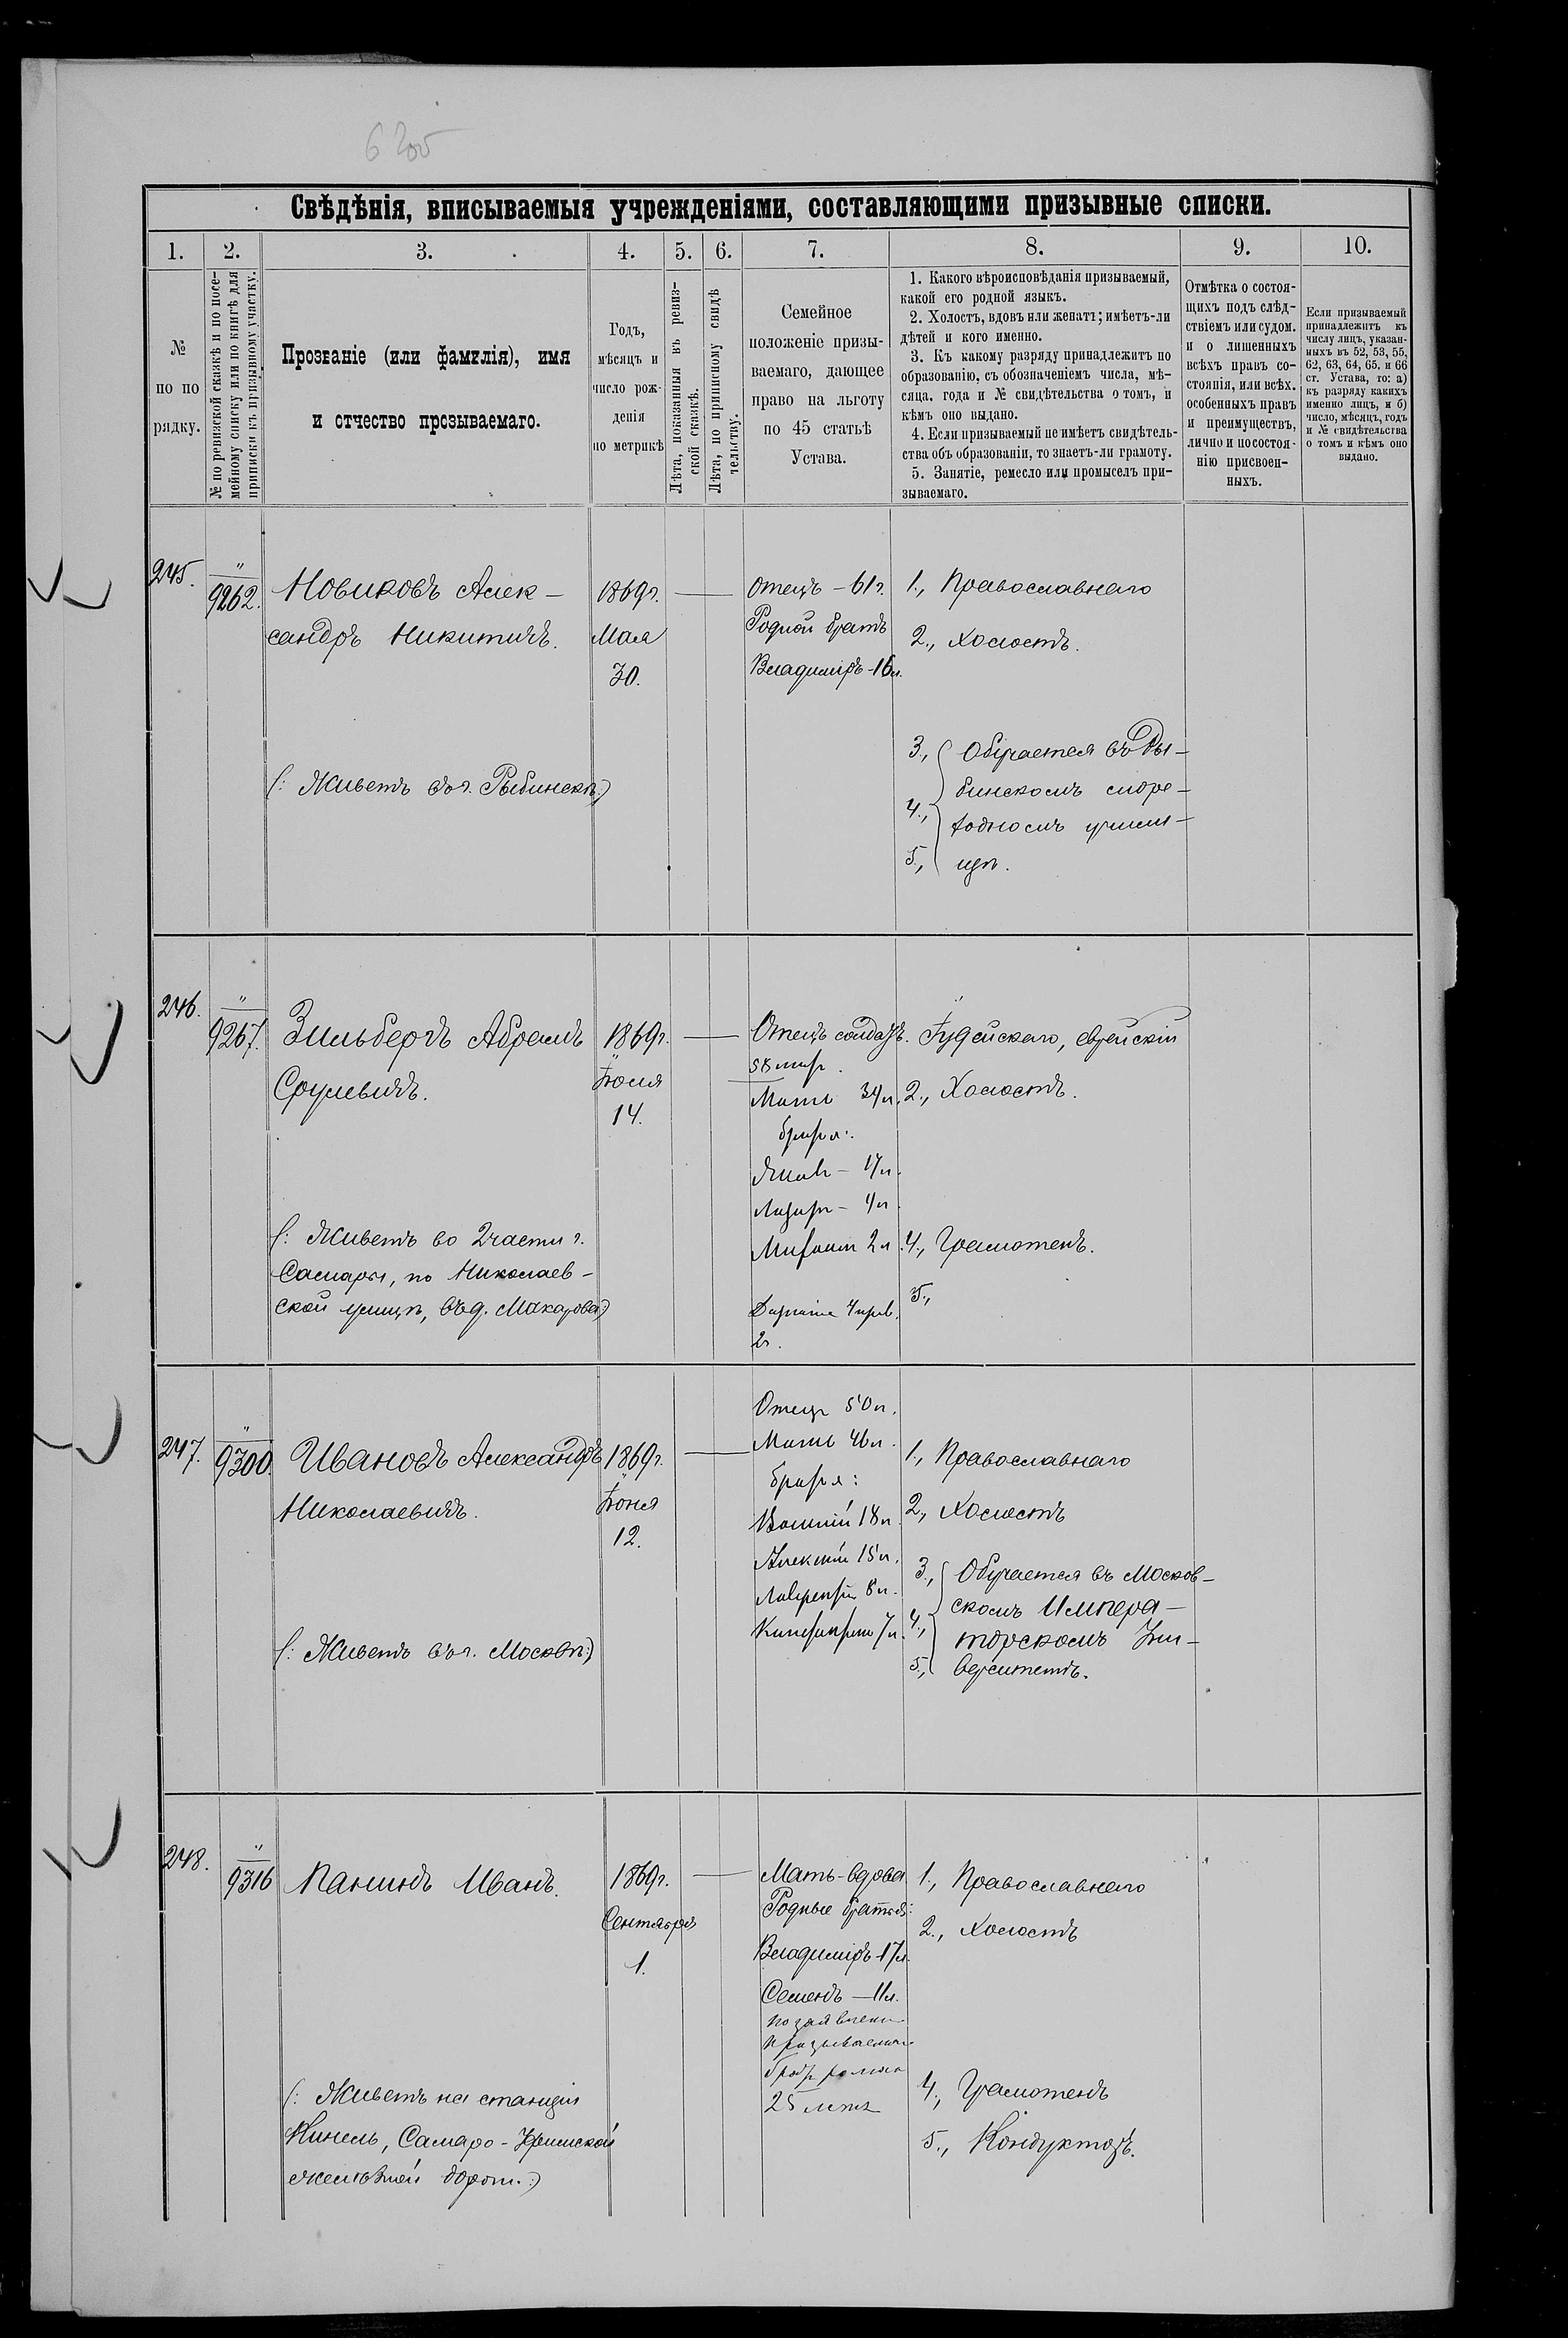 6 205
Свѣдѣнія, вписываемыя учрежденіями, составляющими призывные списки.
1. 2. 3. 4. 5. 6. 7. 8. 9. 10.
№
по по
рядку.
№ по ревизской сказкѣ и по посе-
мейному списку или по книгѣ для
приписки къ призывному участку.
Прозваніе (или фамилія), имя
и отчество прозываемаго.
Годъ,
мѣсяцъ и
число рож-
денія
по метрикѣ
Лѣта, показанныя въ ревиз-
ской сказкѣ.
Лѣта, по приписному свидѣ
тельству.
Семейное
положеніе призы-
ваемаго, дающее
право на льготу
по 45 статьѣ
Устава.
1. Какого вѣроисповѣданія призываемый,
какой его родной языкъ.
2. Холостъ, вдовъ или женатъ; имѣетъ-ли
дѣтей и кого именно.
3. Къ какому разряду принадлежитъ по
образованію, съ обозначеніемъ числа, мѣ-
сяца, года и № свидѣтельства о томъ, и
кѣмъ оно выдано.
4. Если призываемый не имѣетъ свидѣтель-
ства объ образованіи, то знаетъ-ли грамоту.
5. Занятіе, ремесло или промыселъ при-
зываемаго.
Отмѣтка о состоя-
щихъ подъ слѣд-
ствіемъ или судом.
и о лишенныхъ
всѣхъ правъ со-
стоянія, или всѣх.
особенныхъ правъ
и преимуществъ,
лично и по состоя-
нію присвоен-
ныхъ.
Если призываемый
принадлежитъ къ
числу лицъ, указан-
ныхъ въ 52, 53, 55,
62, 63, 64, 65. и 66
ст. Устава, то: а)
къ разряду какихъ
именно лицъ, и б)
число, мѣсяцъ, годъ
и № свидѣтельства
о томъ и кѣмъ оно
выдано.
245.
"
9262.
Новиковъ Алек-
сандръ Никитичъ.
(: Живетъ въ г. Рыбинскѣ:)
1869г.
Мая
30.
Отецъ - 61г.
Родной братъ
Владиміръ - 16л.
1., Православнаго
2., Холостъ.
3., Обучается въ Ры-
бинскомъ
4., училищ-
5., цѣ.
246.
"
9267.
Зильбергъ Абрамъ
Сруулевичъ.
(: Живетъ во 2 части г.
Самары, по Николаев-
ской улицѣ, въ д. Макарова:)
1869г.
Іюля
14.
Отецъ солдатъ.
Мать 39л.
братья:
Яковъ - 17л.
Лазарь -
2л.
2г.
Іудейскаго, еврейскій
2., Холостъ.
4., Грамотенъ.
5.,
247.
"
9300.
Ивановъ Александръ
Николаевичъ.
(: Живетъ въ г. Москвѣ:)
1869г.
Іюня
12.
Отецъ 50л.
Мать 46л.
братья:
Василій 18л.
Алексѣй 15л.
Лаврентій 8л.
7л.
1., Православнаго
2., Холостъ
3., Обучается въ Москов-
скомъ Импера-
4., торскомъ Уни-
5., верситетѣ.
248.
"
9316
Панинъ Иванъ.
(: Живетъ на станціи
Кинель, Самаро-Уфимской
желѣзной дороги.:)
1869г.
Сентября
1.
Мать-вдова.
Родные братья:
Владиміръ - 17л.
Семенъ - 11л.
по заявлен.
призываемаго
25 лѣтъ
1., Православнаго
2., Холостъ
4., Грамотенъ
5., Кондукторъ.